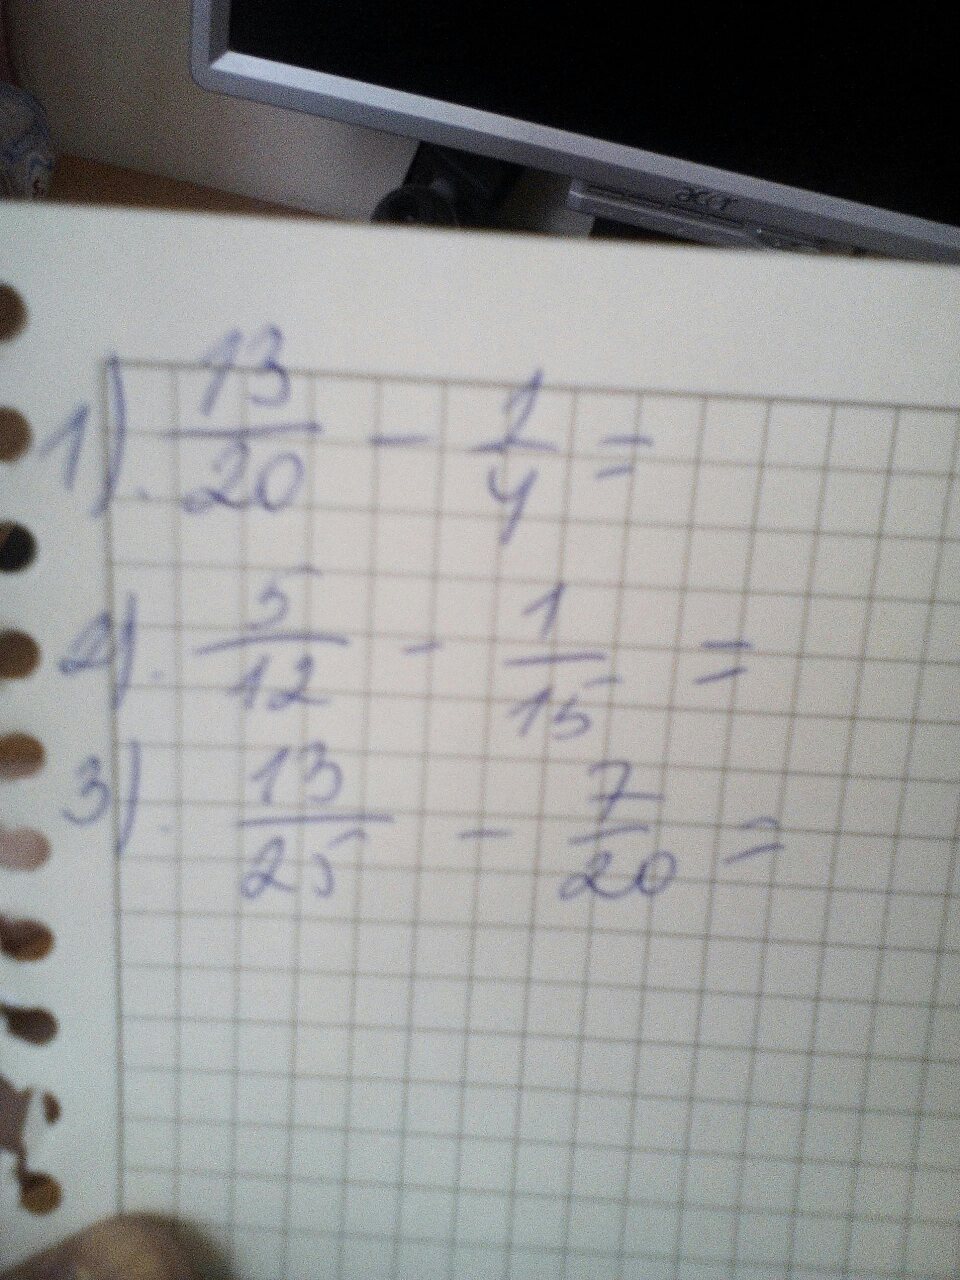 acer
1). 13/20 - 1/4 =
2). 5/12 - 1/15 =
3). 13/25 - 7/20 =